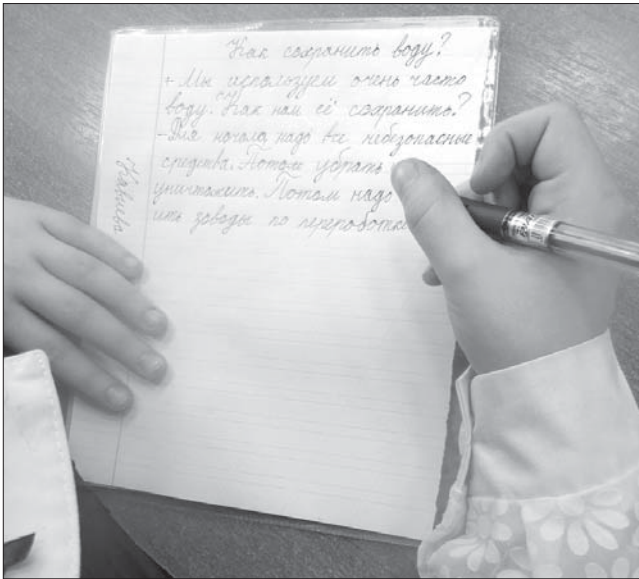 Как сохранить воду?
+ Мы используем очень часто
воду. Как нам её сохранить?
- Для начала надо все небезопасные
средства. Потом убрать
уничтожить. Потом надо
ить заводы по переработке